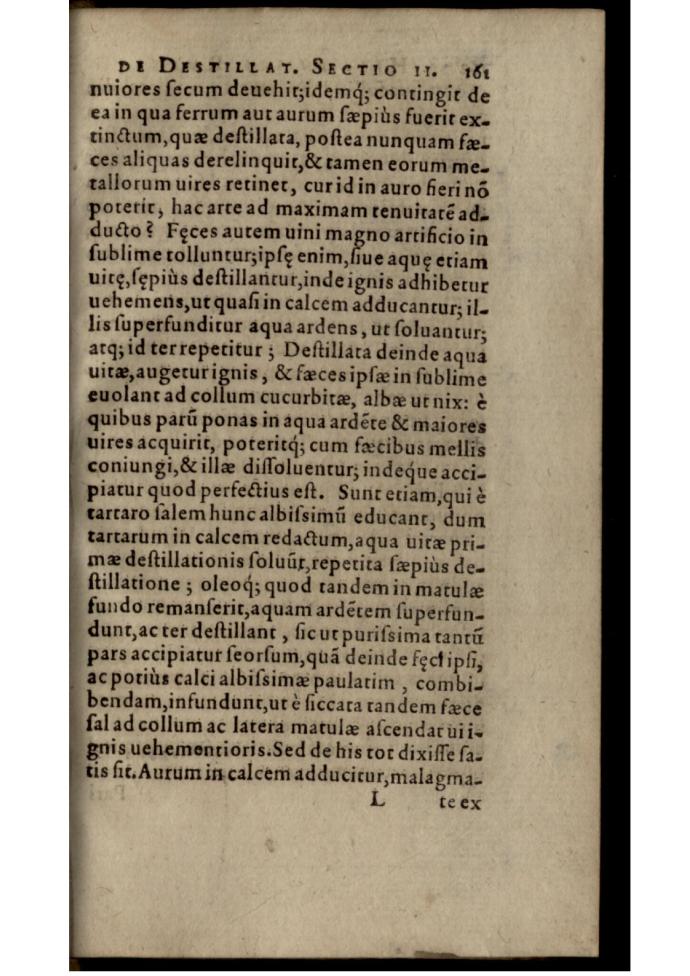 DE DESTILLAT. SECTIO II. 161
nuiores secum deuehit;idemq́; contingit de
ea in qua ferrum aut aurum sæpiùs fuerit ex-
tinctum,quæ destillata, postea nunquam fæ-
ces aliquas derelinquit,& tamen eorum me-
tallorum uires retinet, cur id in auro fieri nõ
poterit, hac arte ad maximam tenuitatẽ ad-
ducto? Fęces autem uini magno artificio in
sublime tolluntur;ipsę enim,siue aquę etiam
uitę,sępiùs destillantur,inde ignis adhibetur
uehemens,ut quasi in calcem adducantur; il-
lis superfunditur aqua ardens, ut soluantur;
atq; id ter repetitur ; Destillata deinde aqua
uitæ,augetur ignis, & fæces ipsæ in sublime
euolant ad collum cucurbitæ, albæ ut nix: è
quibus parũ ponas in aqua ardẽte & maiores
uires acquirit, poteritq́; cum fæcibus mellis
coniungi,& illæ dissoluentur; indeque acci-
piatur quod perfectius est. Sunt etiam,qui è
tartaro salem hunc albissimũ educant, dum
tartarum in calcem redactum,aqua uitæ pri-
mæ destillationis soluũt,repetita sæpiùs de-
stillatione ; oleoq́; quod tandem in matulæ
fundo remanserit,aquam ardẽtem superfun-
dunt,ac ter destillant, sic ut purissima tantũ
pars accipiatur seorsum,quã deinde fęci ipsi,
ac potiùs calci albissimæ paulatim, combi-
bendam,infundunt,ut è siccata tandem fæce
sal ad collum ac latera matulæ ascendat ui i-
gnis uehementioris.Sed de his tot dixisse sa-
tis sit.Aurum in calcem adducitur,malagma-
L te ex